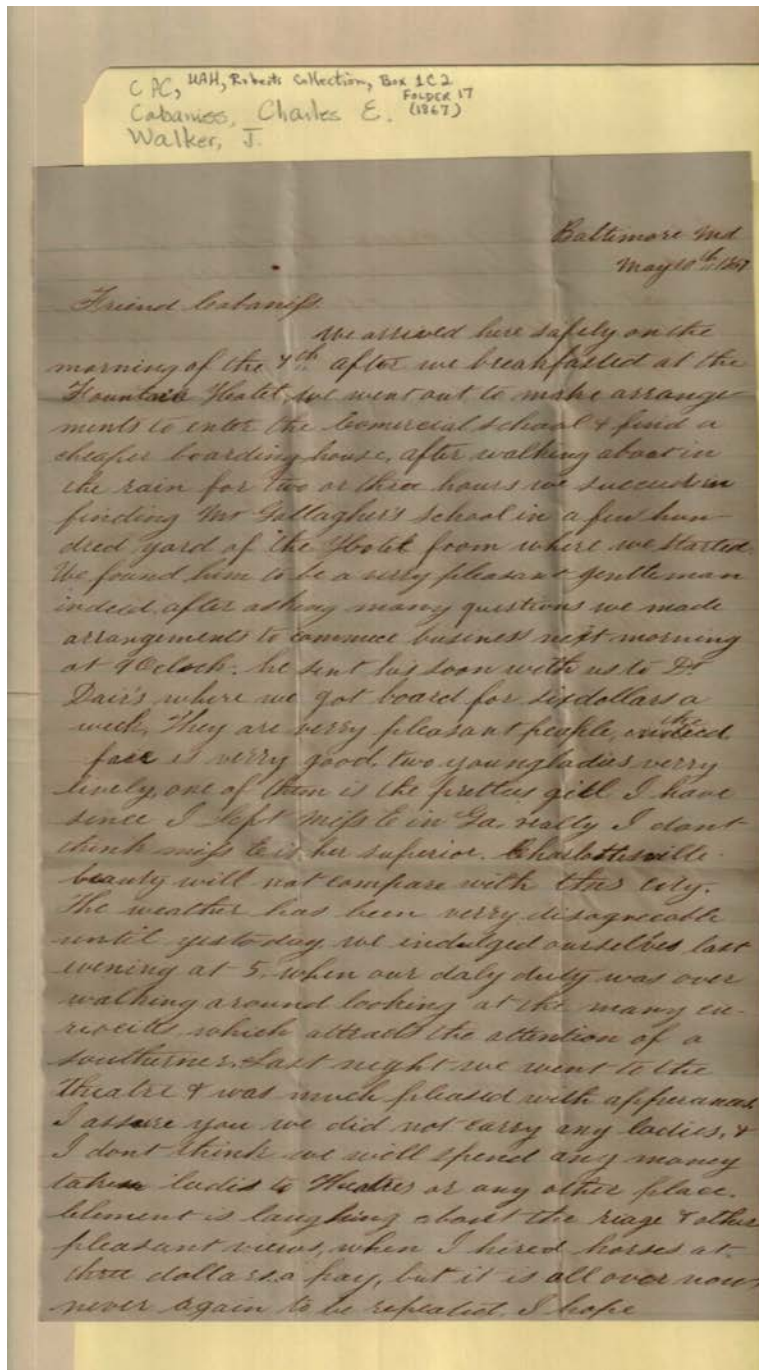 CPC, UAH, Roberts Collection, Box 1C2
FOLDER 17
Cabaniss, Charles E. (1867)
Walker, J.
Baltimore Md
May 10th 1867
Friend Cabaniss.
We arrived here safely on the
morning of the 7th after we breakfasted at the
Fountain Hotel, we went out to make arrange-
ments to enter the Comercial school & find a
cheaper boarding house, after walking about in
the rain for two or three hours we succeed in
finding Mr Gallagher's school in a few hun-
dred yard of the Hotel from where we started.
We found him to be a verry pleasant gentleman
indeed, after asking many questions we made
arrangements to commece business next morning
at 9 Oclock. he sent his soon with us to Dr
Dair's where we got board for six dollars a
week, They are verry pleasant people, indeed the
fare is verry good, two young ladies verry
lively, one of them is the pretties girl I have
since I left Miss E in Ga, really I dont
think miss E is her superior. Charlottesville
beauty will not compare with this city.
The weather has been verry disagreeable
until yestoday, we indulged ourselves last
evening at 5, when our daly duty was over
walking around looking at the many cu-
riocits which attracts the attention of a
southerner. Last night we went to the
Theatre & was much pleased with apperances,
I assure you we did not carry any ladies, &
I dont think we will spend any money
taken ladis to Theatres or any other place.
Clement is laughing about the & other
pleasant views, when I hired horses at
three dollars a pay, but it is all over now,
never again to be repeated. I hope